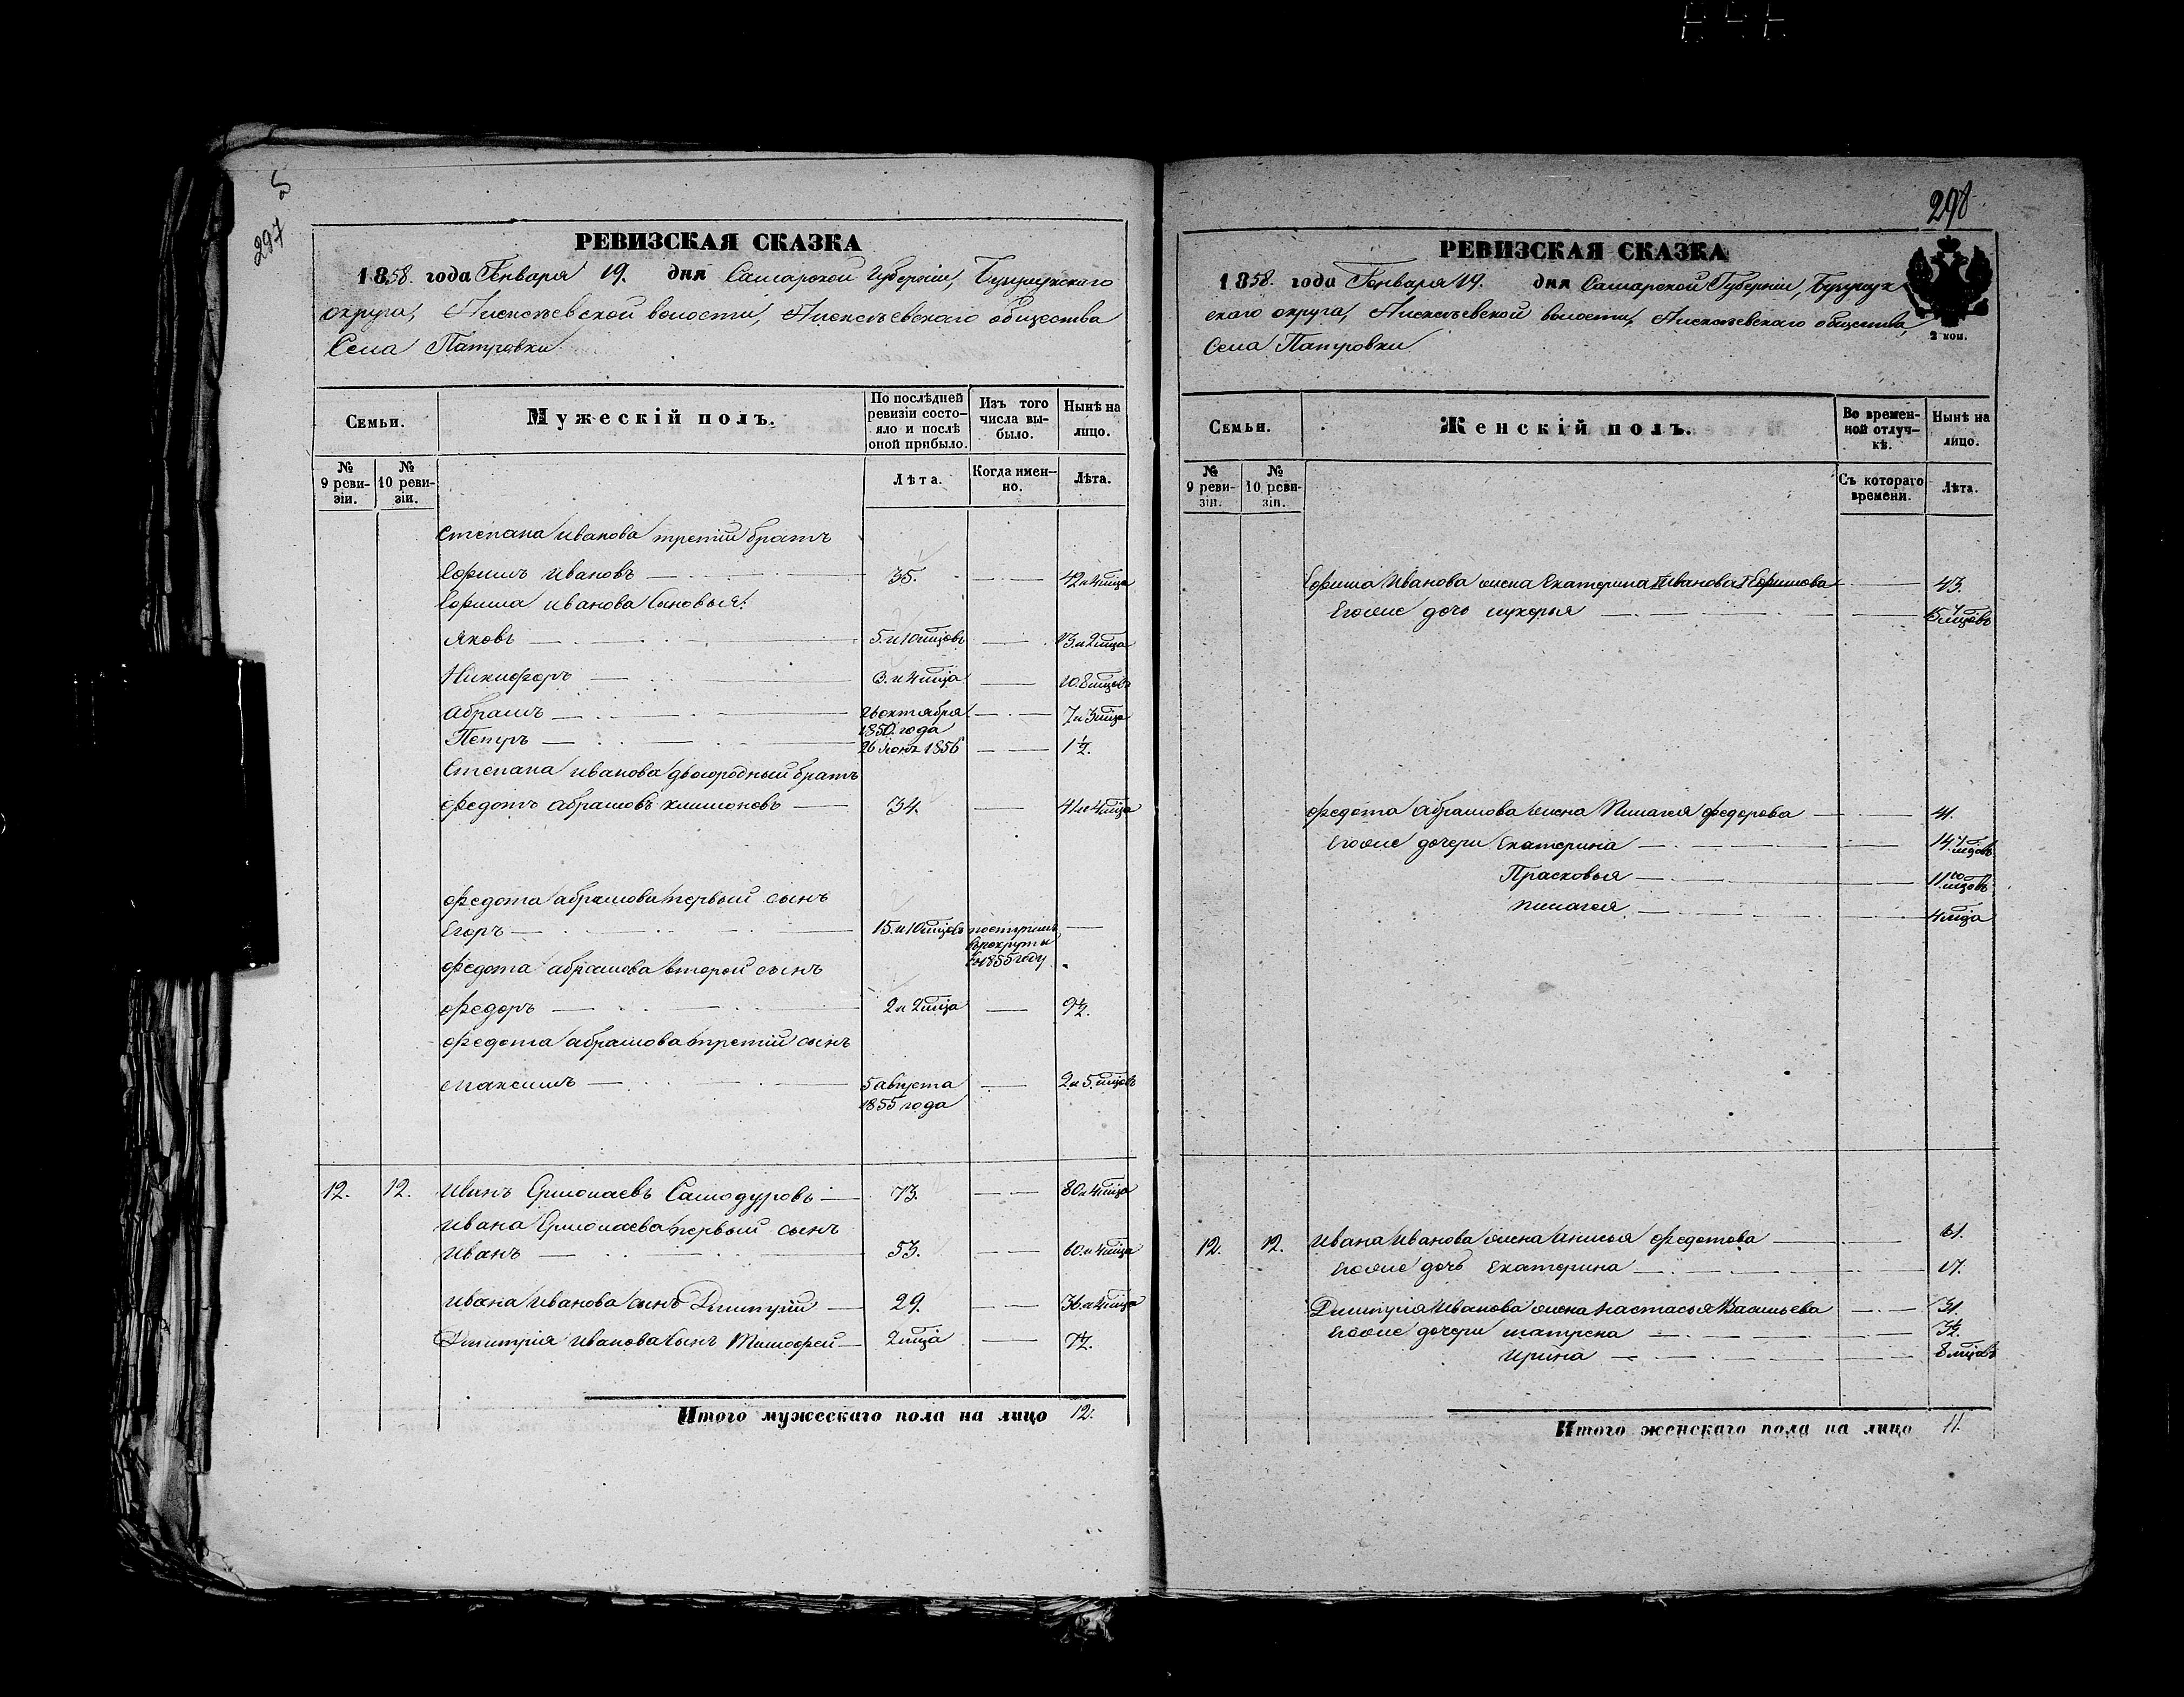 297
РЕВИЗСКАЯ СКАЗКА
1858. года Генваря 19. дня Самарской Губерніи, Бузулукскаго
округа, Алексѣевской волости, Алексѣевскаго общества
Села Патровки
Семьи.
Мужескій полъ.
По послѣдней ревизіи состо-
яло и послѣ оной прибыло.
Изъ того числа вы-
было.
Нынѣ на лицо.
№ 9 реви-
зіи.
№ 10 реви-
зіи.
Лѣта.
Когда имен-
но.
Лѣта.
Степана Иванова третій братъ
Ефимъ Ивановъ 35. 42 и 4 мца
Ефима Иванова Сыновья:
Яковъ 5. и 10 мцовъ 13. и 2 мца
Никифоръ 3. и 4 мца 10. 8 мцовъ
Абрамъ 26 октября 1850 года 7 и 3 мца
Петръ 26 1856 1½.
Степана Иванова двоюродный братъ
Федотъ Абрамовъ 34. 41 и 4 мца
Федота Абрамова первый сынъ
Егоръ 15. и 10 мцовъ поступилъ
в рекруты
в 1855 году
Федота Абрамова второй сынъ
Федоръ 2 и 2 мца 9½.
Федота Абрамова третій сынъ
Максимъ 5 августа 2 и 5. мцовъ
1855 года
12. 12. Иванъ Ермолаевъ Самодуровъ 73. 80 и 4 мца
Ивана Ермолаева первый сынъ
Иванъ 53. 60. и 4 мца
Ивана Иванова сынъ Дмитрій 29. 36. и 4 мца
Дмитрія Иванова сынъ Тимофей 2 мца 7½.
Итого мужескаго пола на лицо 12.
298
РЕВИЗСКАЯ СКАЗКА
1858. года Генваря 19. дня Самарской Губерніи, Бузулук
скаго округа, Алексѣевской волости, Алексѣевскаго общества,
Села Патровки
2 коп.
Семьи.
Женскій полъ.
Во времен-
ной отлуч-
кѣ.
Нынѣ на лицо.
№ 9 реви-
зіи.
№ 10 реви-
зіи.
Съ котораго времени.
Лѣта.
Ефима Иванова жена Екатерина Иванова 43.
Егоже дочь лукерья 15
Федота Абрамова жена Пилагея Федорова 41.
Егоже дочери Екатерина 14.
Прасковья 11 10 мцовъ
Пилагея 4 мца
12. 12. Ивана Иванова жена Анисья Федотова 61.
Егоже дочь Екатерина 17.
Дмитрія Иванова жена Настасья Васильева 31.
Егоже дочери матрена 3½.
Ирина 8 мцовъ
Итого женскаго пола на лицо 11.